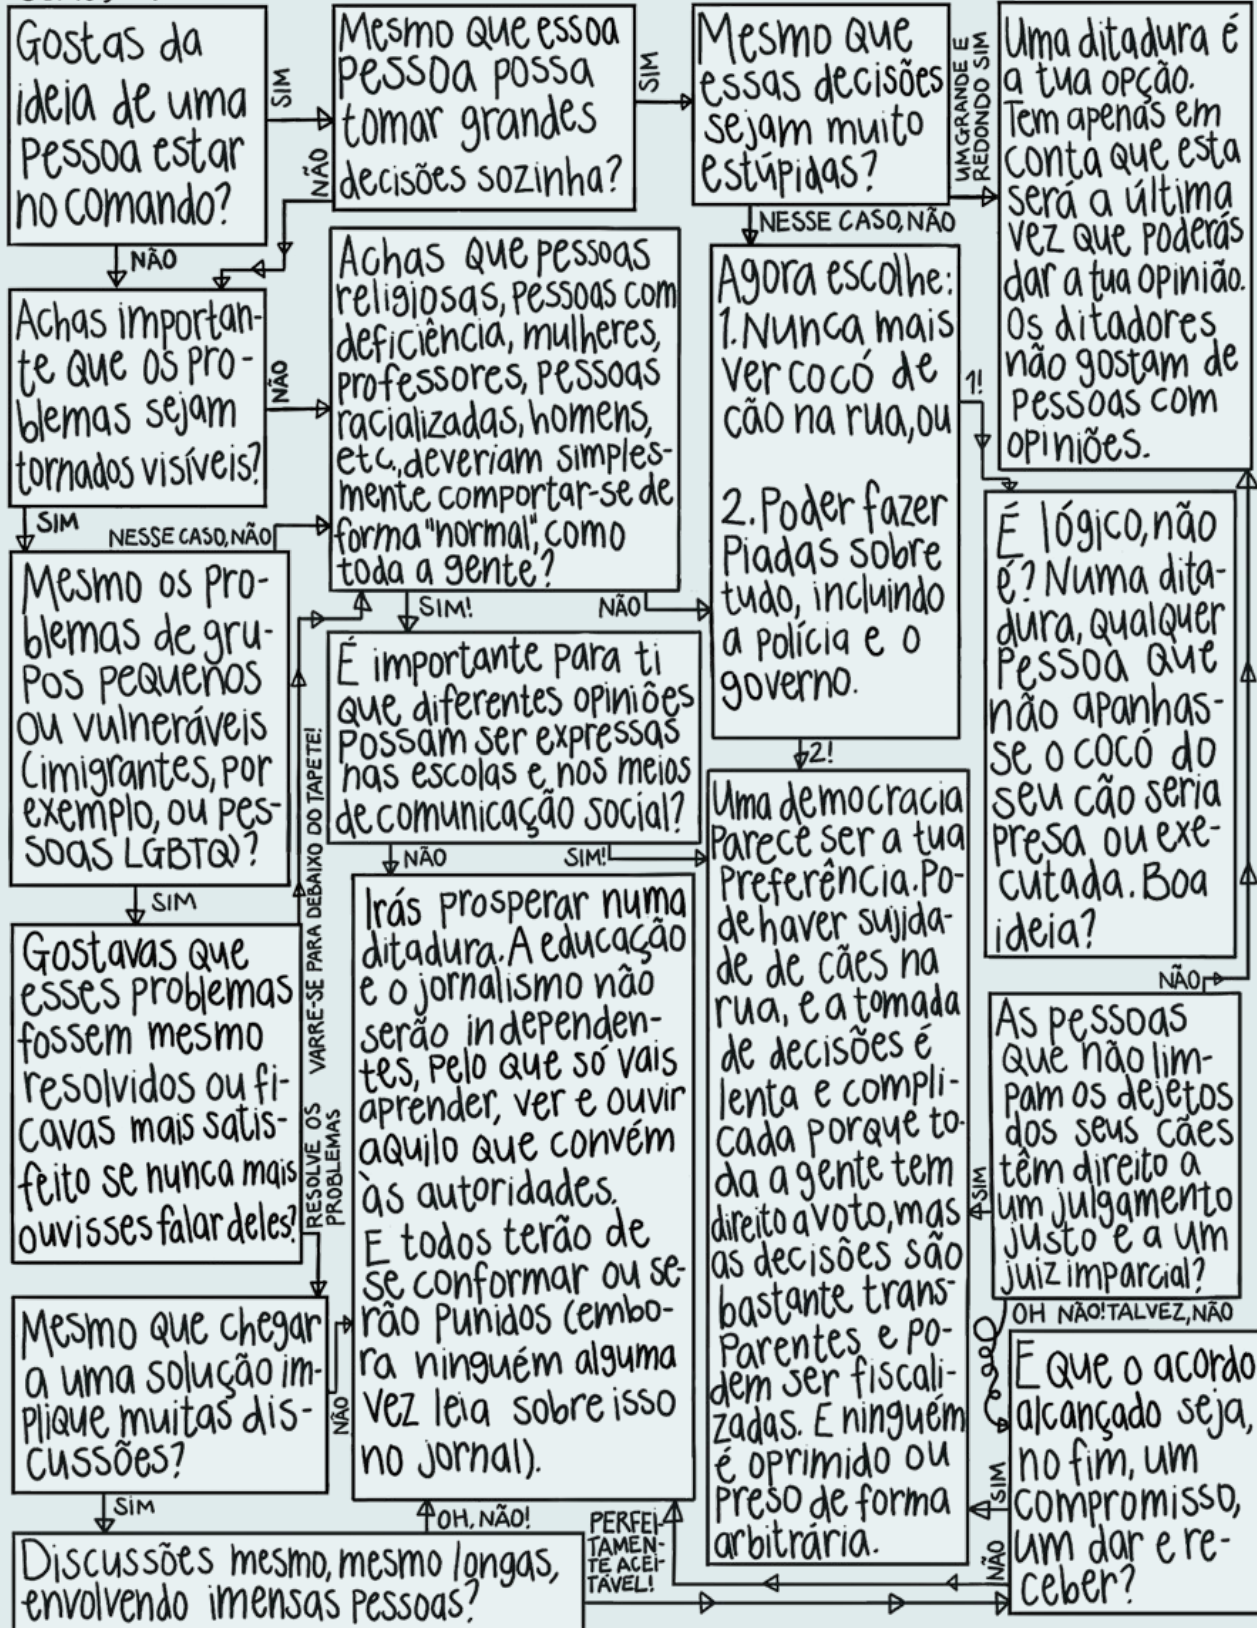 Gostas da
ideia de uma
pessoa estar
no comando?
SIM
NÃO
Mesmo que essoa
pessoa possa
tomar grandes
decisões sozinha?
SIM
NÃO
Mesmo que
essas decisões
sejam muito
estúpidas?
UM GRANDE E
REDONDO SIM
NESSE CASO, NÃO
Uma ditadura é
a tua opção.
Tem apenas em
conta que esta
será a última
vez que poderás
dar a tua opinião.
Os ditadores
não gostam de
pessoas com
opiniões.
Achas importan-
te que os pro-
blemas sejam
tornados visíveis?
NÃO
SIM
Achas que pessoas
religiosas, pessoas com
deficiência, mulheres,
professores, pessoas
racializadas, homens,
etc., deveriam simples-
mente comportar-se de
forma "normal", como
toda a gente?
SIM!
NÃO
Agora escolhe:
1. Nunca mais
ver cocó de
cão na rua, ou
2. Poder fazer
piadas sobre
tudo, incluindo
a polícia e o
governo.
1!
2!
É lógico, não
é? Numa dita-
dura, qualquer
pessoa que
não apanhas-
se o cocó do
seu cão seria
presa ou exe-
cutada. Boa
ideia?
NESSE CASO, NÃO
Mesmo os pro-
blemas de gru-
pos pequenos
ou vulneráveis
(imigrantes, por
exemplo, ou pes-
soas LGBTQ)?
SIM
É importante para ti
que diferentes opiniões
possam ser expressas
nas escolas e nos meios
de comunicação social?
NÃO
SIM!
Gostavas que
esses problemas
fossem mesmo
resolvidos ou fi-
cavas mais satis-
feito se nunca mais
ouvisses falar deles?
VARRE-SE PARA DEBAIXO DO TAPETE!
RESOLVE OS
PROBLEMAS
Irás prosperar numa
ditadura. A educação
e o jornalismo não
serão independen-
tes, pelo que só vais
aprender, ver e ouvir
aquilo que convém
às autoridades.
E todos terão de
se conformar ou se-
rão punidos (embo-
ra ninguém alguma
vez leia sobre isso
no jornal).
Uma democracia
parece ser a tua
preferência. Po-
de haver sujida-
de de cães na
rua, e a tomada
de decisões é
lenta e compli-
cada porque to-
da a gente tem
direito a voto, mas
as decisões são
bastante trans-
parentes e po-
dem ser fiscali-
zadas. E ninguém
é oprimido ou
preso de forma
arbitrária.
NÃO
As pessoas
que não lim-
pam os dejetos
dos seus cães
têm direito a
um julgamento
justo e a um
juiz imparcial?
SIM
OH NÃO! TALVEZ, NÃO
Mesmo que chegar
a uma solução im-
plique muitas dis-
cussões?
NÃO
SIM
E que o acordo
alcançado seja,
no fim, um
compromisso,
um dar e re-
ceber?
SIM
NÃO
Discussões mesmo, mesmo longas,
envolvendo imensas pessoas?
OH, NÃO!
PERFEI-
TAMEN-
TE ACEI-
TÁVEL!